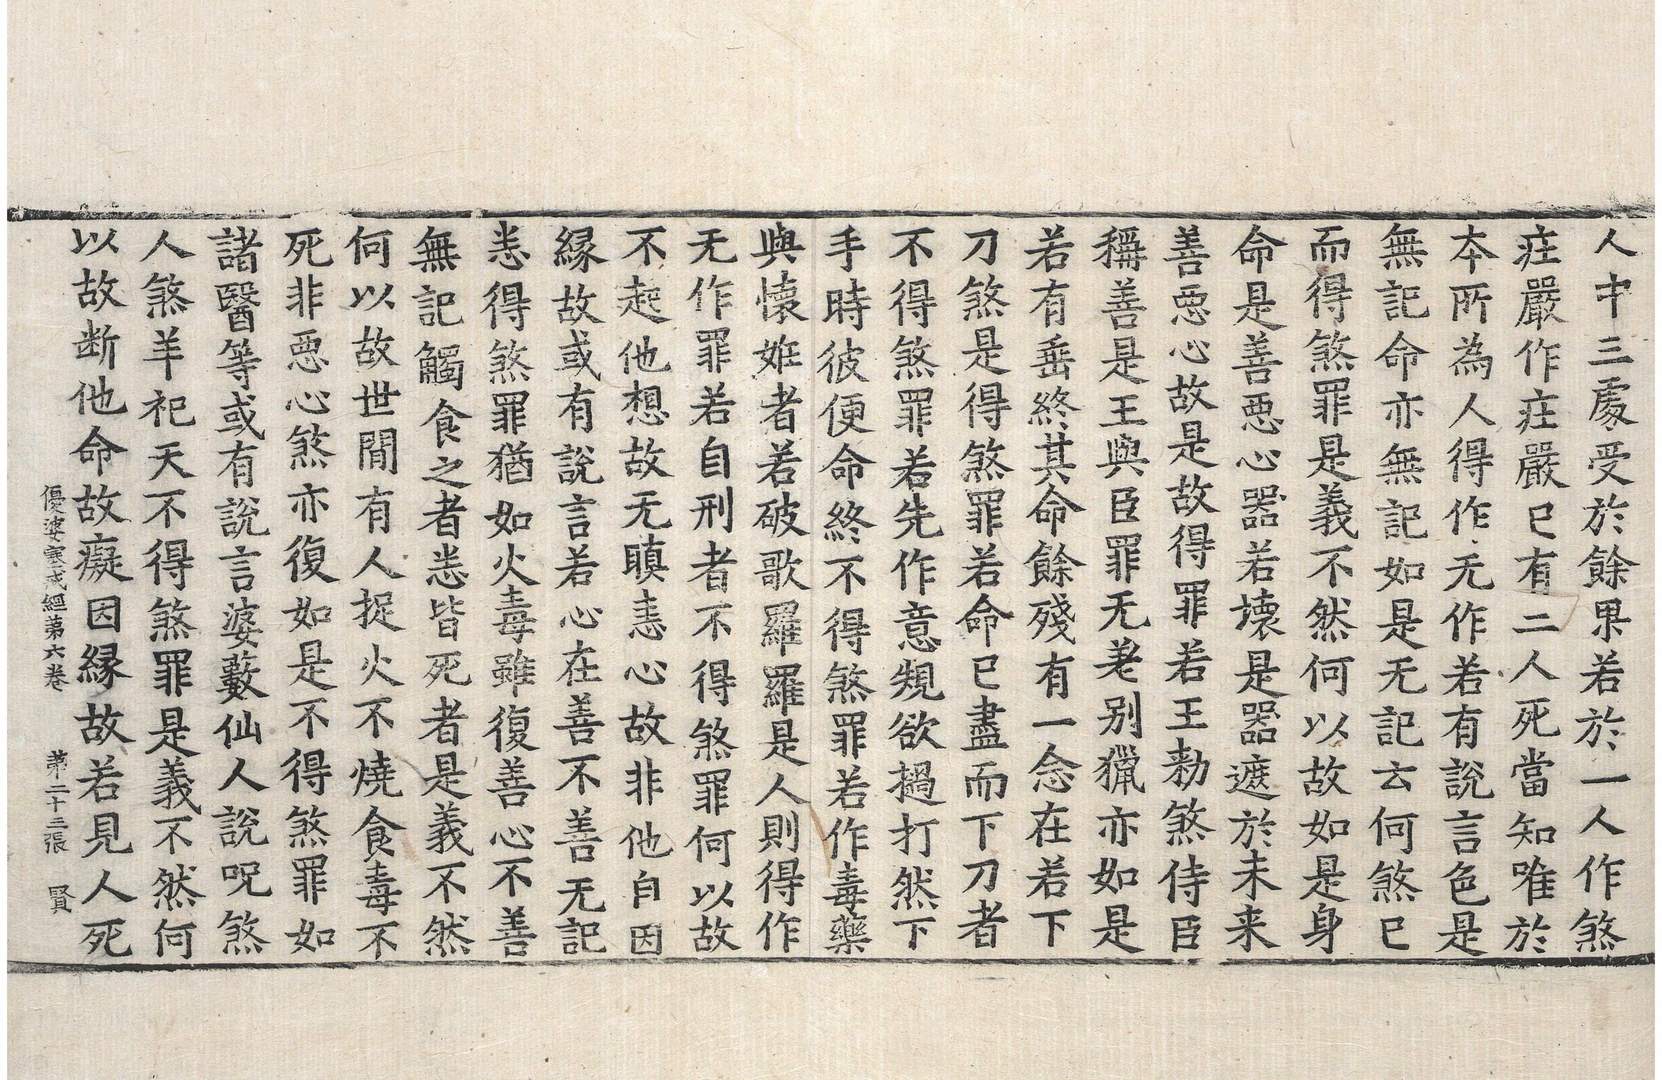 人中三處受於餘果若於一人作煞
疘嚴作疘嚴已有二人死當知唯於
本所為人得作无作若有說言色是
無記命亦無記如是无記云何煞已
而得煞罪是義不然何以故如是身
命是善惡心器若壞是器遮於未来
善惡心故是故得罪若王勑煞侍臣
稱善是王與臣罪无差別獵亦如是
若有垂終其命餘殘有一念在若下
刀煞是得煞罪若命已盡而下刀者
不得煞罪若先作意規欲撾打然下
手時彼便命終不得煞罪若作毒藥
與懷妊者若破歌羅羅是人則得作
无作罪若自刑者不得煞罪何以故
不起他想故无瞋恚心故非他自因
緣故或有說言若心在善不善无記
悉得煞罪猶如火毒雖復善心不善
無記觸食之者悉皆死者是義不然
何以故世間有人捉火不燒食毒不
死非惡心煞亦復如是不得煞罪如
諸醫等或有說言婆藪仙人說呪煞
人煞羊祀天不得煞罪是義不然何
以故断他命故癡因緣故若見人死
優婆塞戒經第六卷 第二十三張 賢